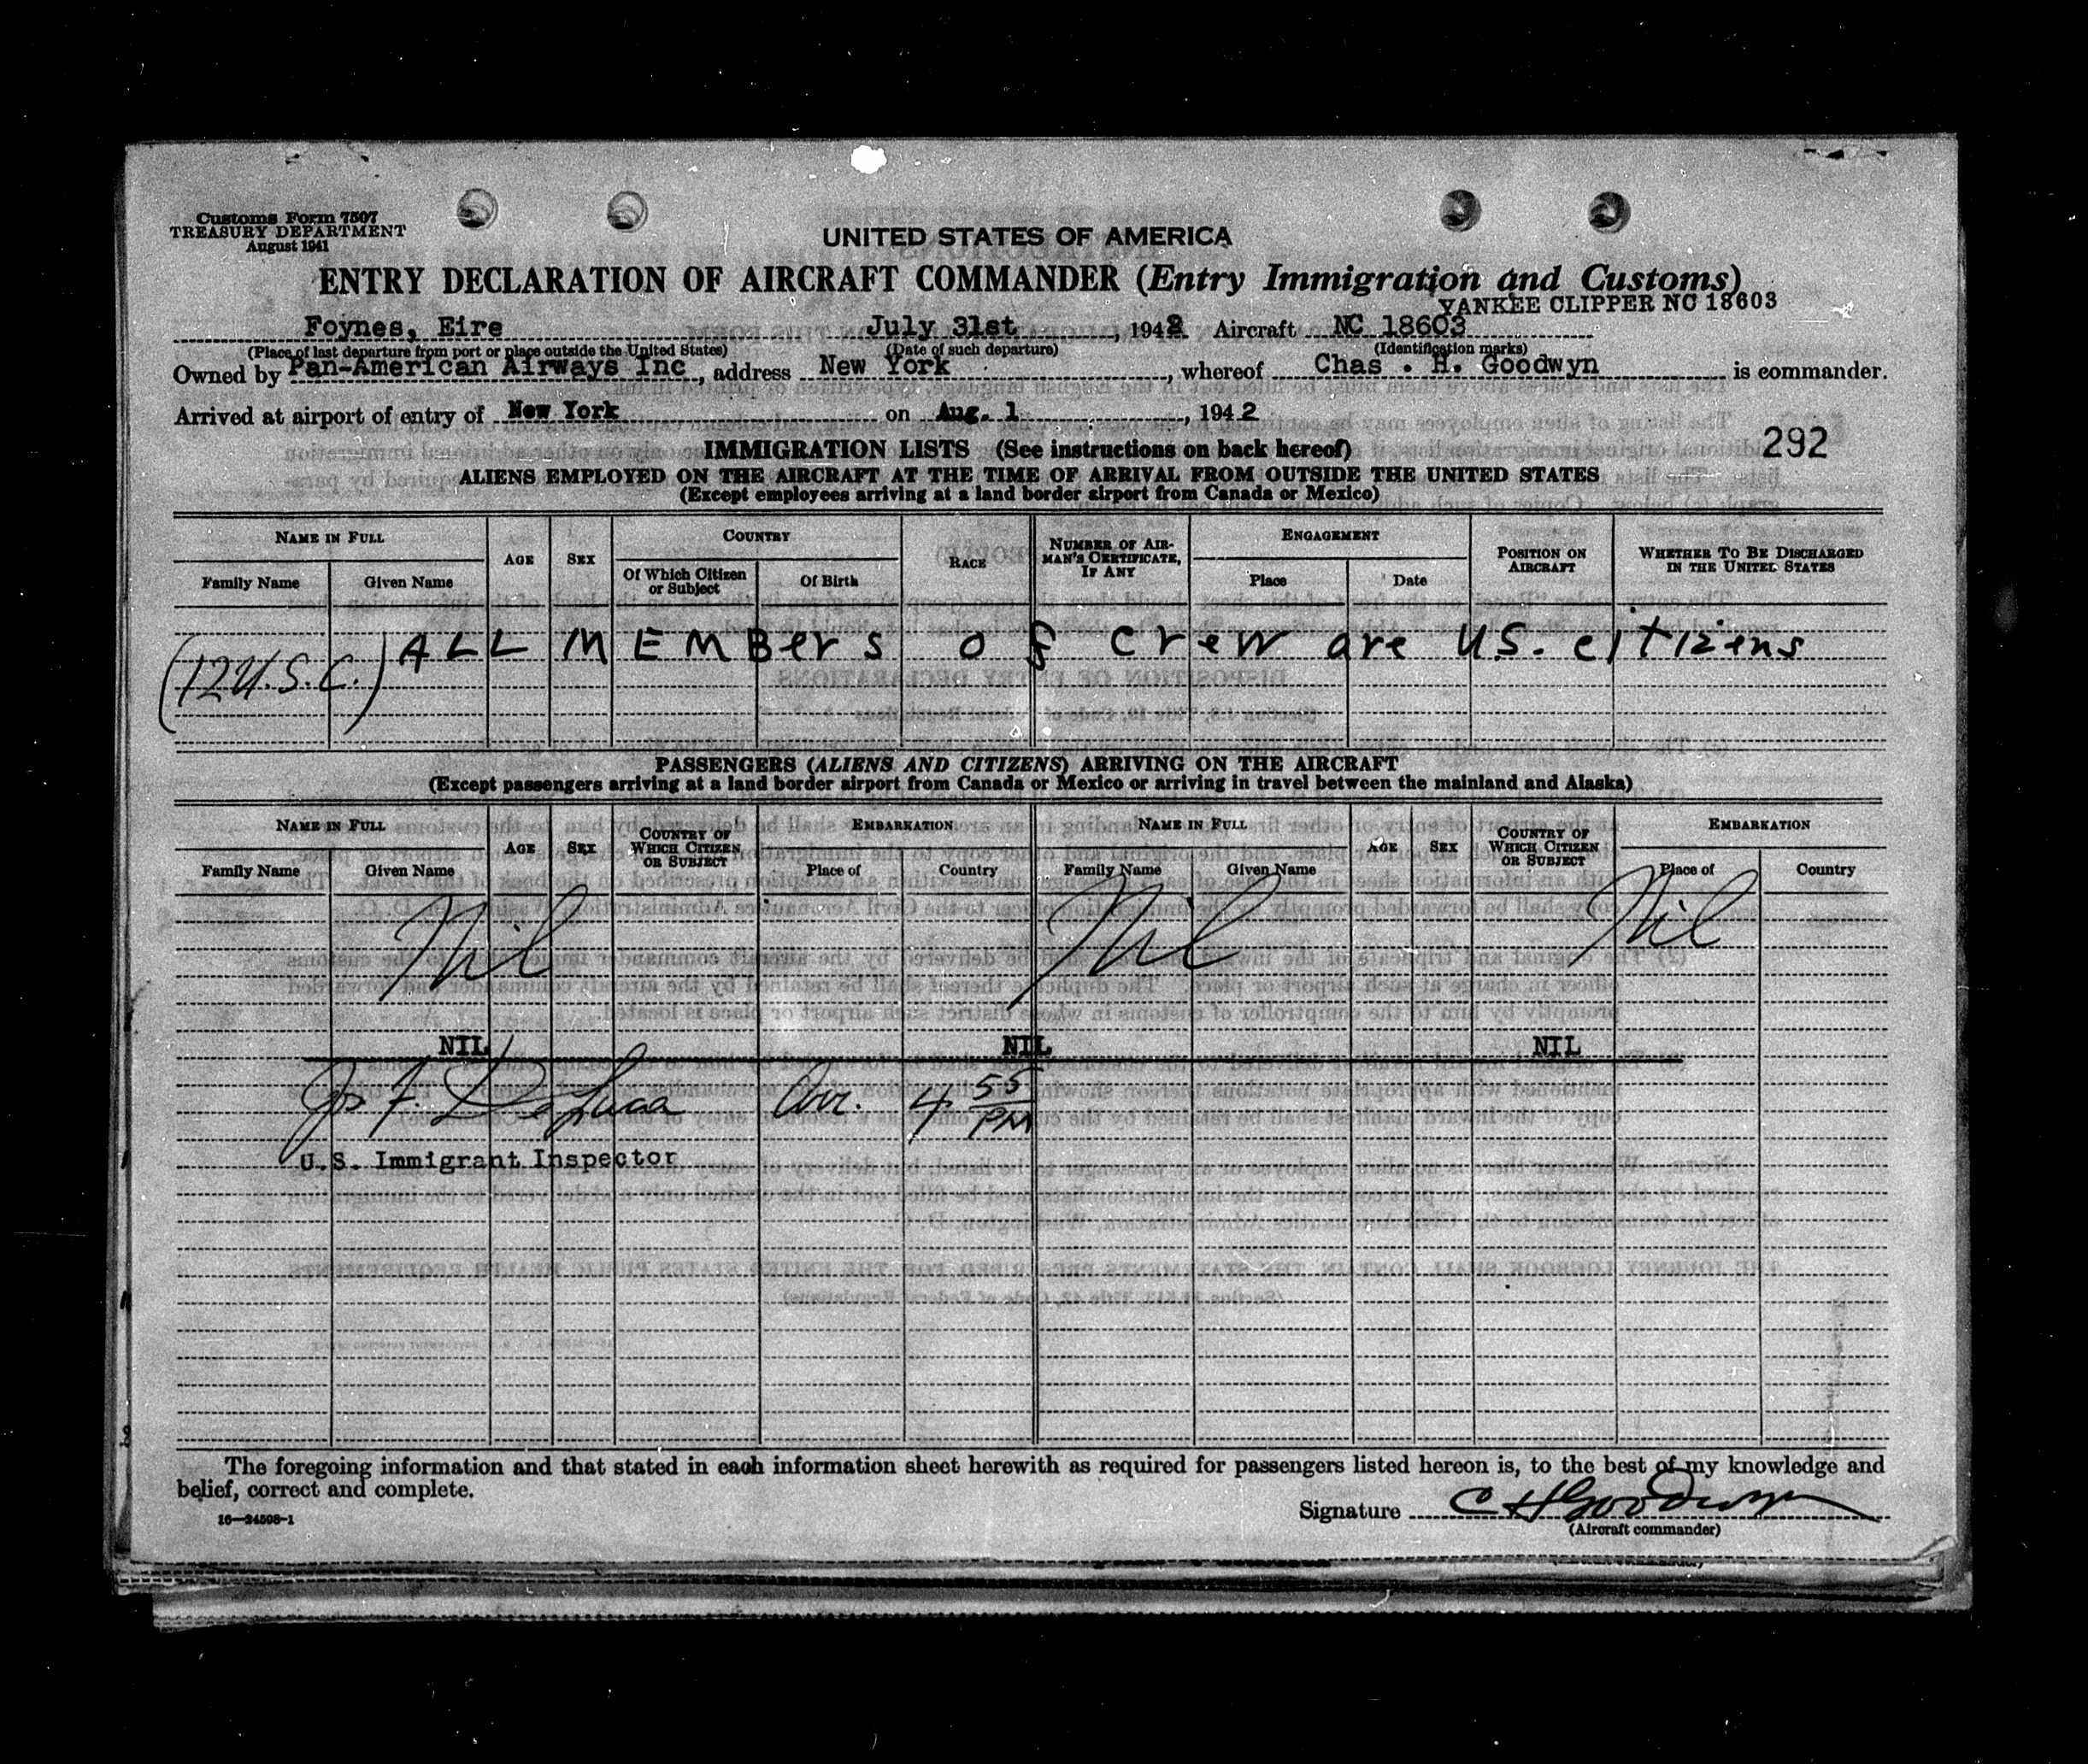 Customs Form 7507
TREASURY DEPARTMENT
August 1941
UNITED STATES OF AMERICA
ENTRY DECLARATION OF AIRCRAFT COMMANDER (Entry Immigration and Customs)
YANKEE CLIPPER NC 18603
Foynes, Eire July 31st, 1942 Aircraft NC 18603
(Place of last departure from port or place outside the United States) (Date of such departure) (Identification marks)
Owned by Pan-American Airways Inc, address New York, whereof Chas . H. Goodwyn is commander.
Arrived at airport of entry of New York on Aug. 1, 1942
292
IMMIGRATION LISTS (See instructions on back hereof)
ALIENS EMPLOYED ON THE AIRCRAFT AT THE TIME OF ARRIVAL FROM OUTSIDE THE UNITED STATES
(Except employees arriving at a land border airport from Canada or Mexico)
NAME IN FULL AGE SEX COUNTRY RACE NUMBER OF AIRMAN'S CERTIFICATE, IF ANY ENGAGEMENT POSITION ON AIRCRAFT WHETHER TO BE DISCHARGED IN THE UNITED STATES
Family Name Given Name Of Which Citizen or Subject Of Birth Place Date
ALL MEMBers of crew are U.S. citizens
(12 U.S.C.)
PASSENGERS (ALIENS AND CITIZENS) ARRIVING ON THE AIRCRAFT
(Except passengers arriving at a land border airport from Canada or Mexico or arriving in travel between the mainland and Alaska)
NAME IN FULL AGE SEX COUNTRY OF WHICH CITIZEN OR SUBJECT EMBARKATION NAME IN FULL AGE SEX COUNTRY OF WHICH CITIZEN OR SUBJECT EMBARKATION
Family Name Given Name Place of Country Family Name Given Name Place of Country
Nil Nil Nil
NIL NIL NIL
Jos F. DeLuca Arr. 4 55 PM
U.S. Immigrant Inspector
The foregoing information and that stated in each information sheet herewith as required for passengers listed hereon is, to the best of my knowledge and
belief, correct and complete.
Signature C H Goodwyn
(Aircraft commander)
16—24598-1